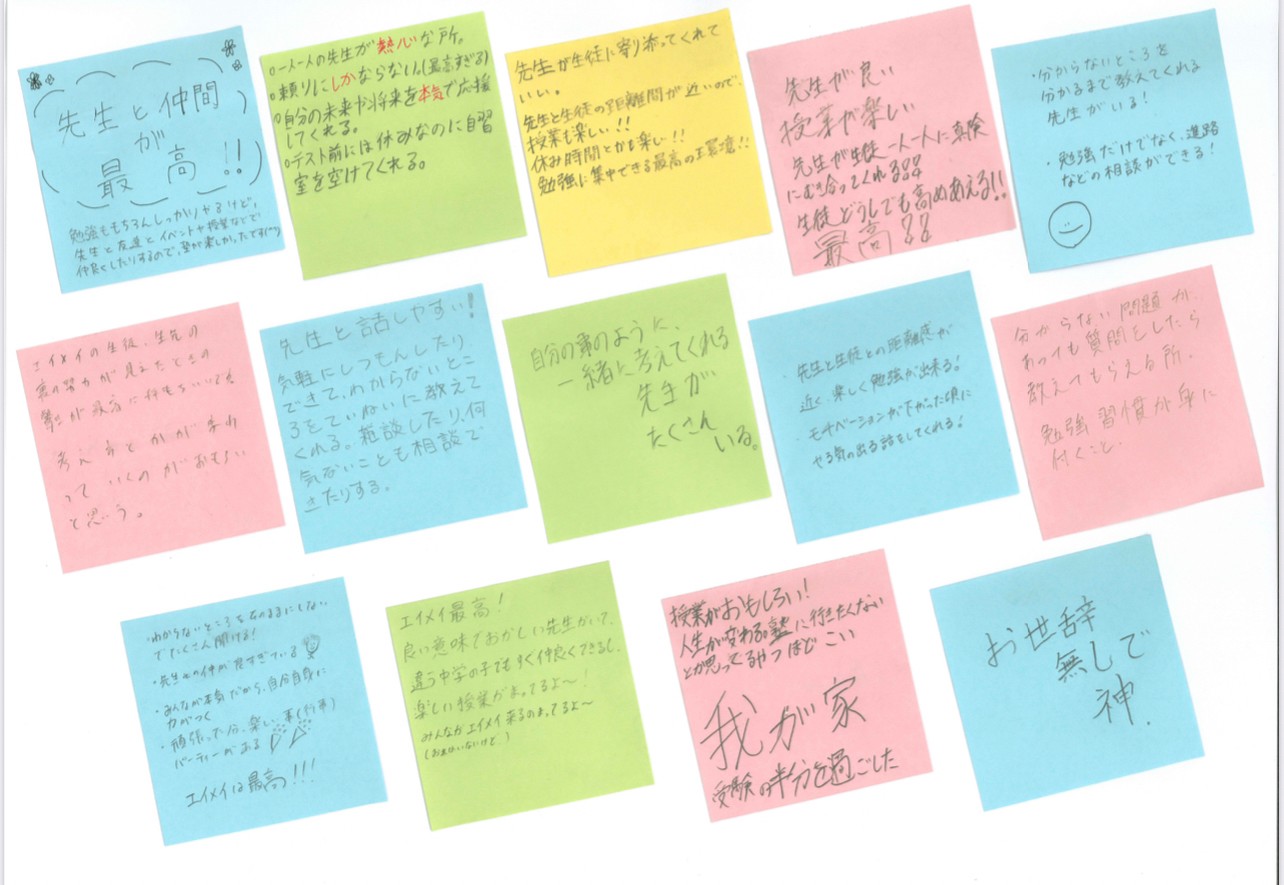 先生と仲間
が
最高!!
勉強ももちろんしっかりやるけど、
先生と友達とイベントや授業などで
仲良くしたりするので、塾が楽しかったです(^^)
○一人一人の先生が熱心な所。
○頼りにしかならない。(最高すぎる)
○自分の未来や将来を本気で応援
してくれる。
○テスト前には休みなのに自習
室を空けてくれる。
先生が生徒に寄り添ってくれて
いい。
先生と生徒の距離間が近いので、
授業も楽しい!!
休み時間とかも楽しい!!
勉強に集中できる最高の環境!!
先生が良い
授業が楽しい
先生が生徒一人一人に真険
にむき合ってくれる
生徒どうしでも高めあえる!!
最高
・分からないところを
分かるまで教えてくれる
先生がいる!
・勉強だけでなく、進路
などの相談ができる!
エイメイの生徒、生先の
努力が見えたときの
考え方とかが
っていくのがおもしろい
と思う。
先生と話しやすい!
気軽にしつもんしたり
できて、わからないとこ
ろをていねいに教えて
くれる。雑談したり、何
気ないことも相談で
きたりする。
自分の事のように、
一緒に考えてくれる
先生が
たくさん
いる。
・先生と生徒との距離感が
近く、楽しく勉強が出来る!
・モチベーションが下がった時に
やる気の出る話をしてくれる!
分からない問題が、
あっても質問をしたら
教えてもらえる所、
勉強習慣が身に
付くこと、
・わからないところをそのままにしない
でたくさん聞ける!
・先生との仲が良すぎている
・みんなが本気だから、自分自身に
力がつく
・頑張った分、楽しい事(行事)
パーティーがある
エイメイは最高!!!
エイメイ最高!
良い意味でおかしい先生がいて、
違う中学の子でもすぐ仲良くできるし、
楽しい授業がまってるよ〜!
みんながエイメイ来るのまってるよ〜
(お是はいないけど)
授業がおもしろい!
人生が変わる。塾に行きたくない
とか思ってるやつほどこい
我が家
受験の半分を過ごした
お世辞
無しで
神.